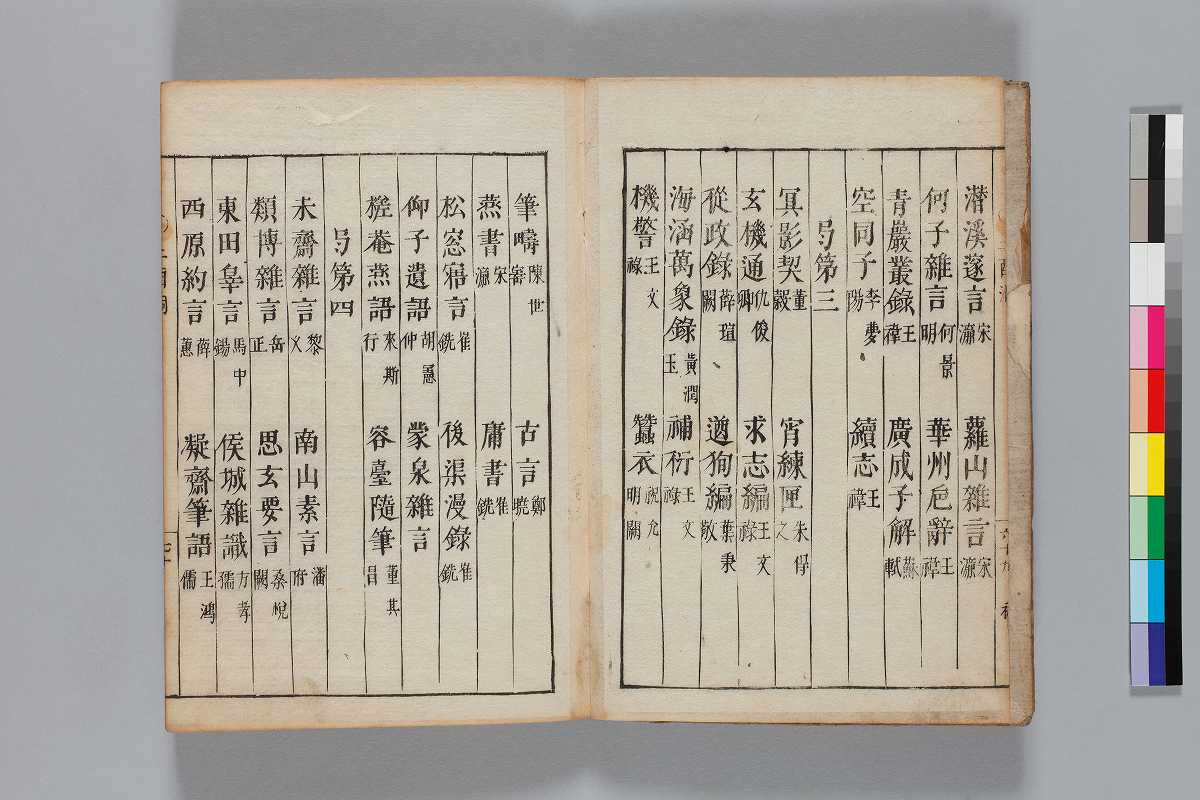 潛溪邃言 宋濂 蘿山雜言 宋濂
何子雜言 何景明 華州卮辭 王禕
青巖叢錄 王禕 廣成子解 蘇軾
空同子 李夢陽 續志 王禕
弓第三
冥影契 董穀 宵練匣 朱得之
玄機通 仇俊卿 求志編 王文祿
從政錄 薛瑄 闕 遒狥編 葉秉敬
海涵萬象錄 黃潤玉 補衍 王文祿
機警 王文祿 蠶衣 祝允明 闕
筆疇 陳世寚 古言 鄭曉
燕書 宋濂 庸書 崔銑
松窓寤言 崔銑 後渠漫錄 崔銑
仰子遺語 胡憲仲 蒙泉雜言
槎菴燕語 來斯行 容臺隨筆 董其昌
弓第四
未齋雜言 黎久 南山素言 潘府
類博雜言 岳正 思玄要言 桑悅 闕
東田皐言 馬中錫 侯城雜識 方孝孺
西原約言 薛蕙 凝齋筆語 王鴻儒